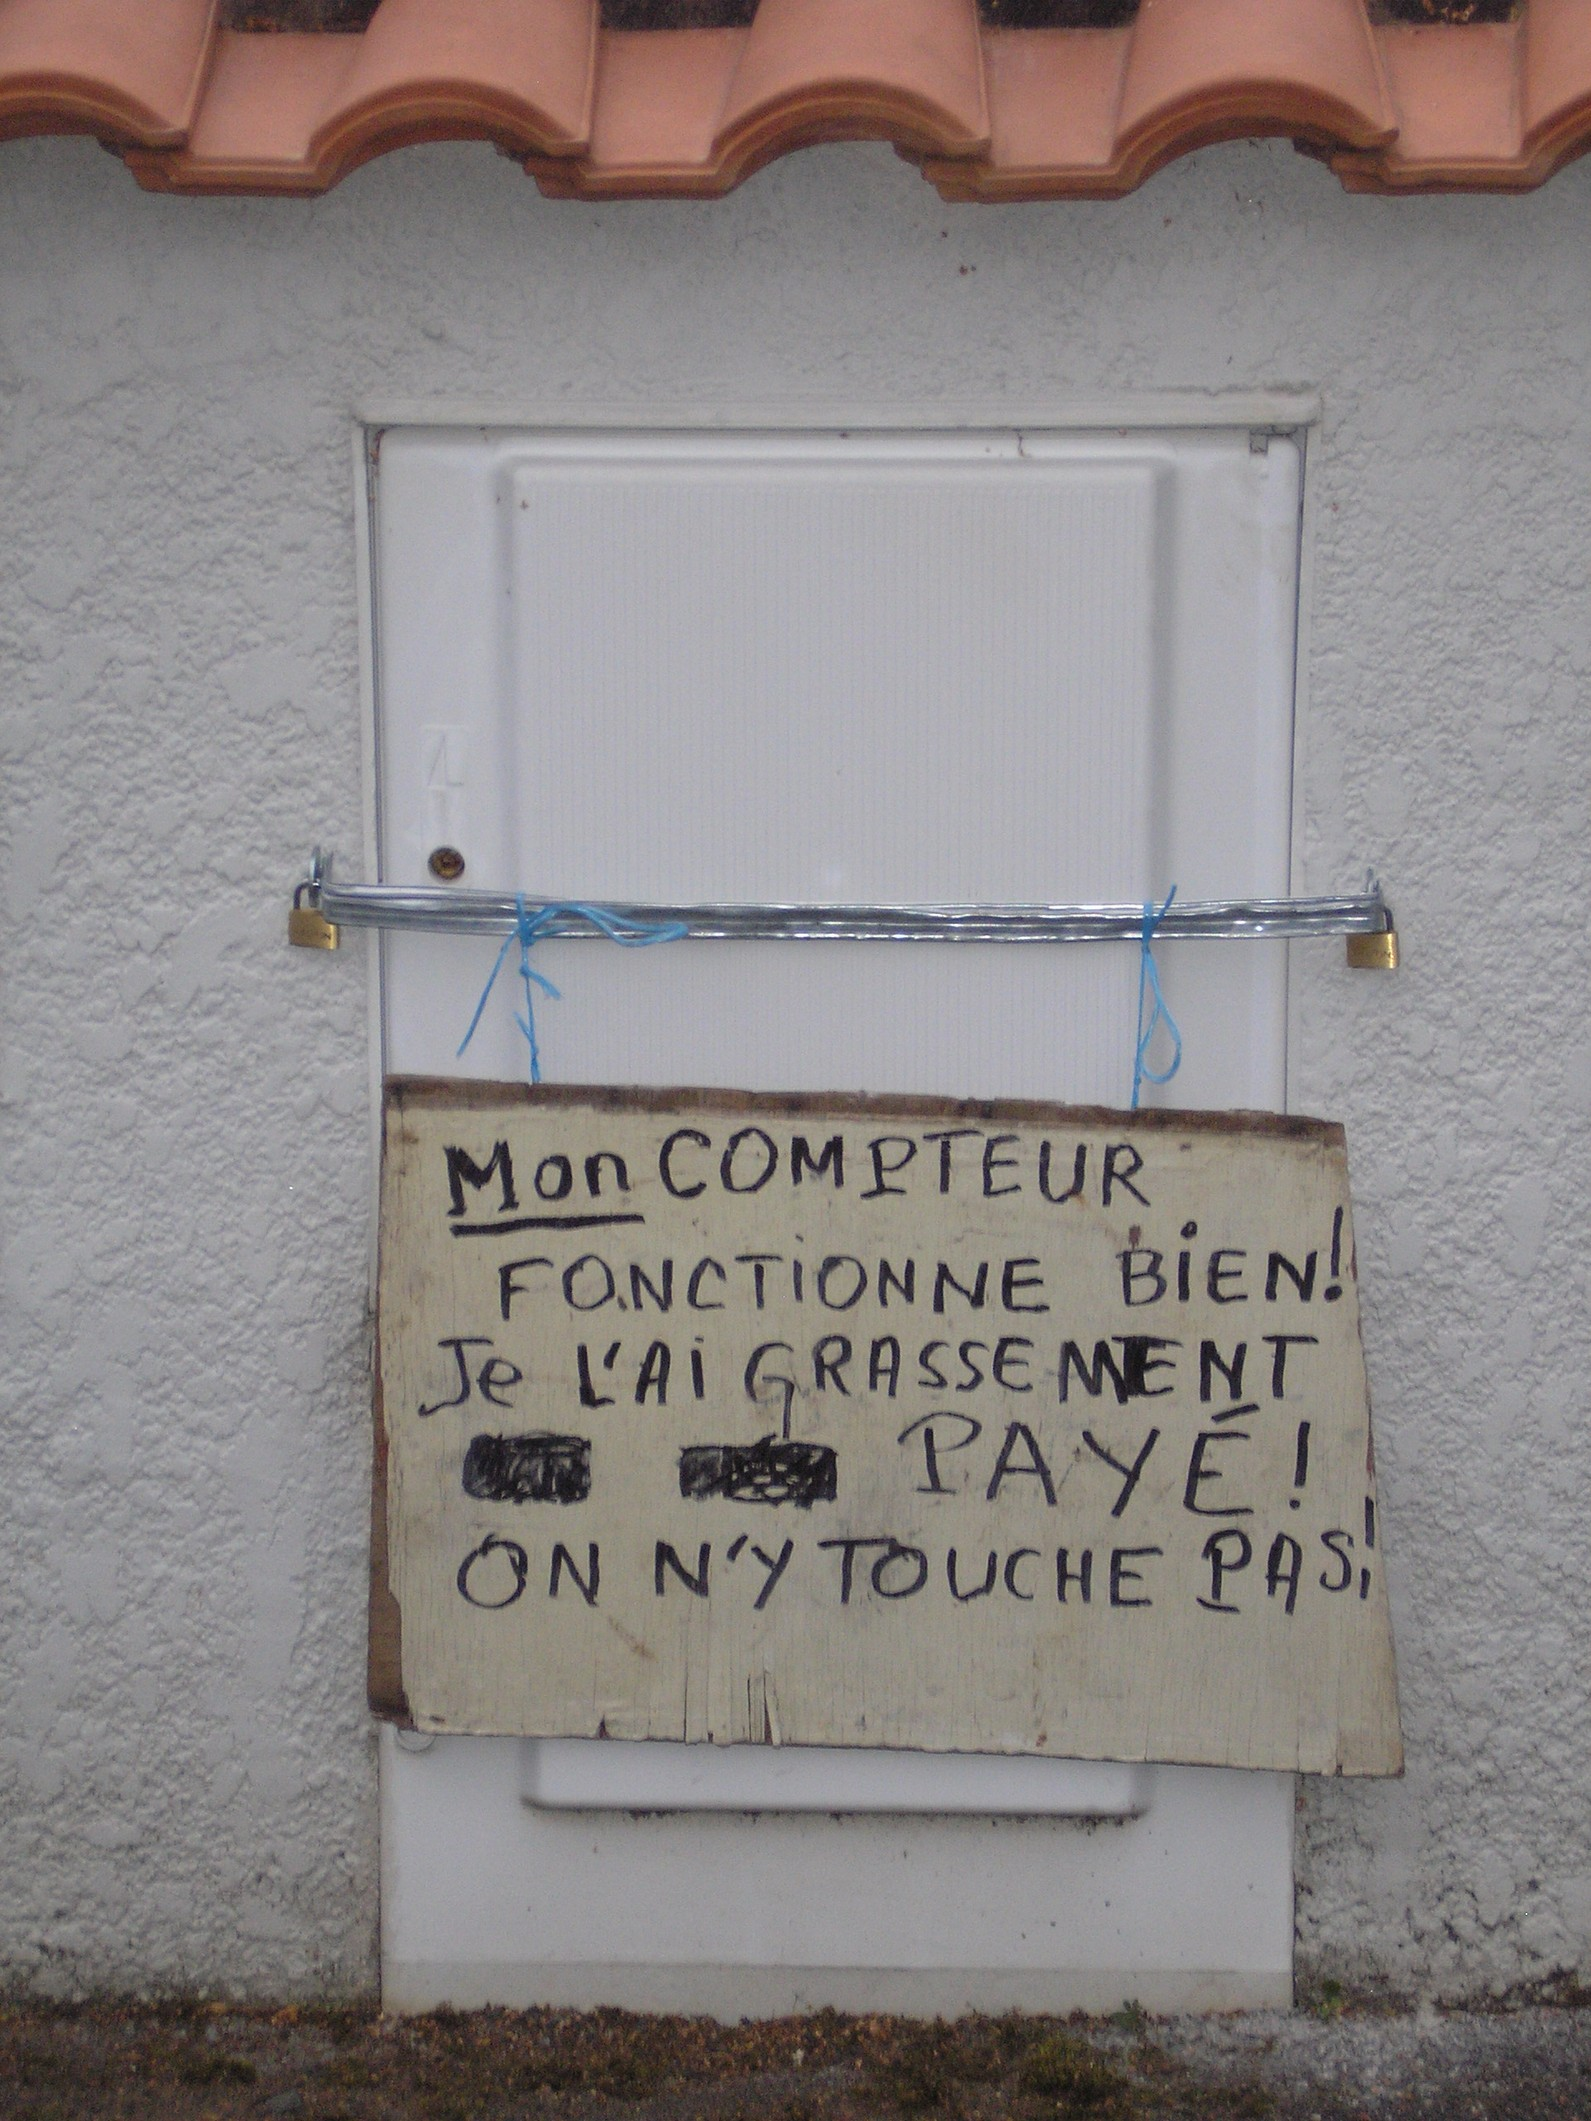 Mon COMPTEUR
FONCTIONNE BiEN!
Je L'Ai GRASSEMENT
PAYÉ!
ON N'Y TOUCHE PAS!